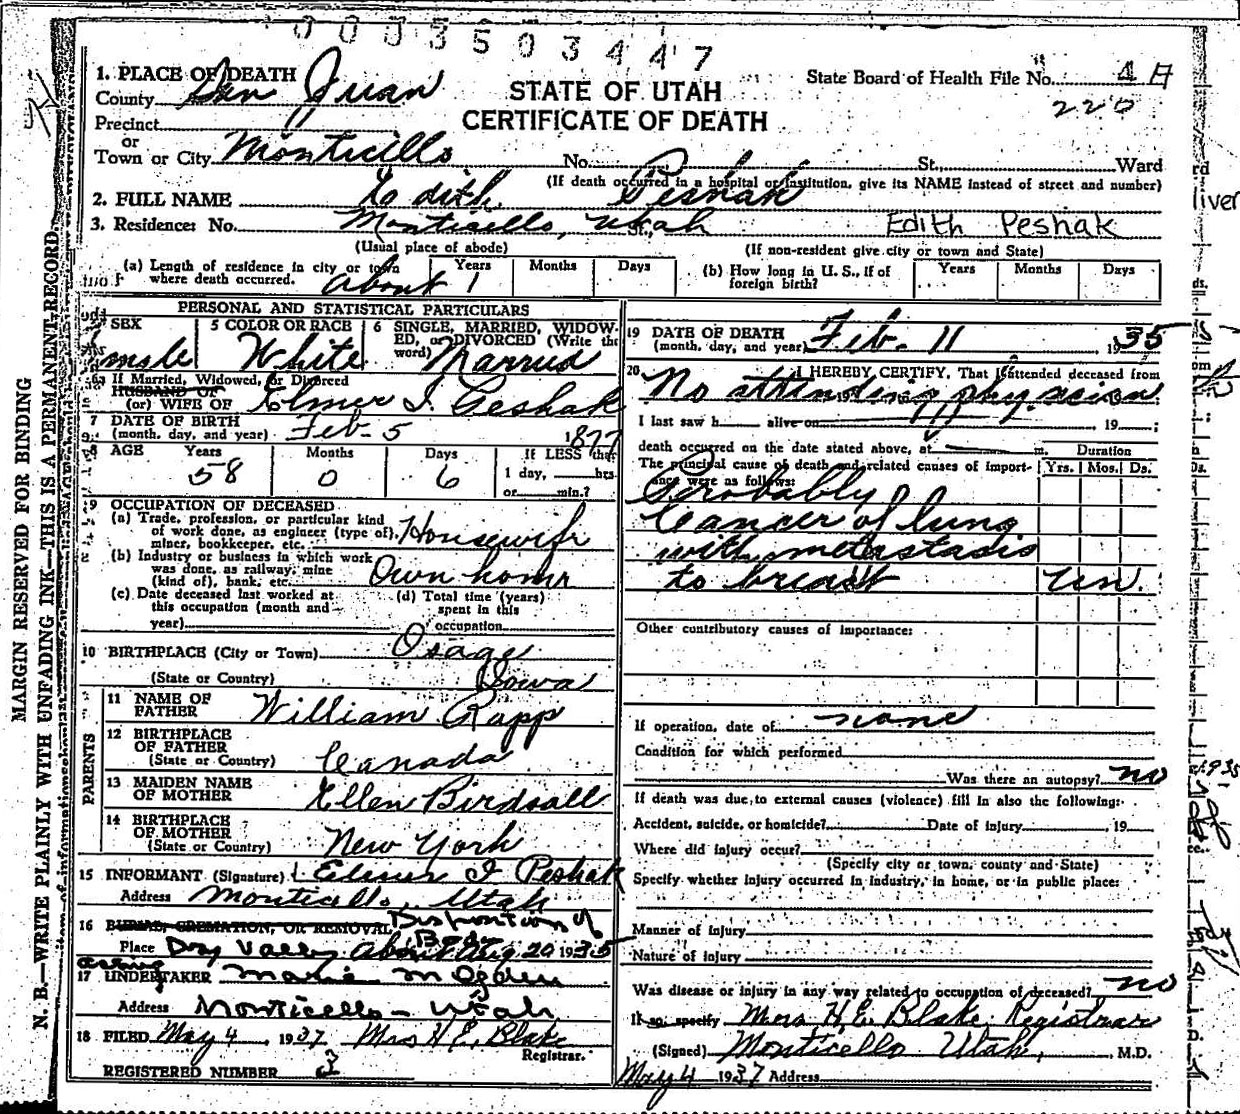 0003503447
1. PLACE OF DEATH
County San Juan
STATE OF UTAH
CERTIFICATE OF DEATH
State Board of Health File No. 4 A
220
Precinct
or
Town or City Monticello No. St., Ward
(If death occurred in a hospital or institution, give its NAME instead of street and number)
2. FULL NAME Edith Peshak
3. Residence: No. Monticello, Utah St., Edith Peshak
(Usual place of abode) (If non-resident give city or town and State)
(a) Length of residence in city or town where death occurred. About 1 Years Months Days
(b) How long in U. S., if of foreign birth? Years Months Days
MARGIN RESERVED FOR BINDING
N. B.—WRITE PLAINLY WITH UNFADING INK—THIS IS A PERMANENT RECORD.
PERSONAL AND STATISTICAL PARTICULARS
SEX male
5 COLOR OR RACE White
6 SINGLE, MARRIED, WIDOWED, or DIVORCED (Write the word) Married
If Married, Widowed, or Divorced
HUSBAND OF
(or) WIFE OF Elmer I. Peshak
7 DATE OF BIRTH
(month, day, and year) Feb-5 1877
8 AGE Years 58 Months 0 Days 6
If LESS than
1 day, hrs.
or min.?
9 OCCUPATION OF DECEASED
(a) Trade, profession, or particular kind
of work done, as engineer (type of),
miner, bookkeeper, etc. Housewife
(b) Industry or business in which work
was done, as railway, mine
(kind of), bank, etc. Own home
(c) Date deceased last worked at
this occupation (month and
year)
(d) Total time (years)
spent in this
occupation
10 BIRTHPLACE (City or Town) Osage
(State or Country) Iowa
PARENTS
11 NAME OF
FATHER William Rapp
12 BIRTHPLACE
OF FATHER
(State or Country) Canada
13 MAIDEN NAME
OF MOTHER Ellen Birdsall
14 BIRTHPLACE
OF MOTHER
(State or Country) New York
15 INFORMANT (Signature) Elmer I Peshak
Address Monticello, Utah
16 BURIAL, CREMATION, OR REMOVAL Disposition of
Body
Place Dry Valley About Aug 20 1935
acting
17 UNDERTAKER Marie M Ogden
Address Monticello - Utah
18 FILED May 4, 1937 Mrs H E. Blake
Registrar.
REGISTERED NUMBER 3
19 DATE OF DEATH
(month, day, and year) Feb. 11 1935
20 I HEREBY CERTIFY, That I attended deceased from
No attending physician
I last saw h alive on , 19 ;
death occurred on the date stated above, at m.
The principal cause of death and related causes of importance were as follows:
Duration
Yrs. Mos. Ds.
Probably
Cancer of lung
with metastasis
to breast Un.
Other contributory causes of importance:
If operation, date of none
Condition for which performed
Was there an autopsy? no
If death was due to external causes (violence) fill in also the following:
Accident, suicide, or homicide? Date of injury , 19
Where did injury occur?
(Specify city or town, county and State)
Specify whether injury occurred in industry, in home, or in public place:
Manner of injury
Nature of injury
Was disease or injury in any way related to occupation of deceased? no
If so, specify Mrs. H. E. Blake. Registrar
(Signed) Monticello Utah, , M.D.
May 4 1937 Address